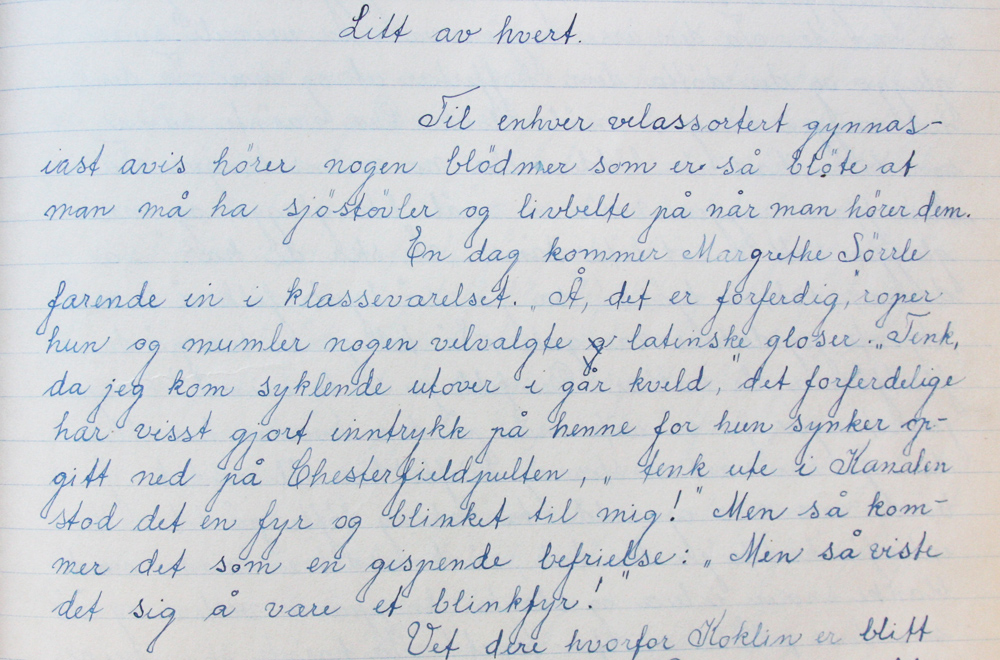 Litt av hvert.
Til enhver velassortert gynnas-
iast avis hörer nogen blödmer som er så blöte at
man må ha sjöstövler og livbelte på når man hörer dem.
En dag kommer Margrethe Sörrle
farende in i klasseværelset. „Å, det er forferdig," roper
hun og mumler nogen velvalgte latinske gloser. „Tenk,
da jeg kom syklende utover i går kveld," det forferdelige
har visst gjort inntrykk på henne for hun synker op-
gitt ned på Chesterfieldpulten, „tenk ute i Kanalen
stod det en fyr og blinket til mig!" Men så kom-
mer det som en gispende befrielse: „Men så viste
det sig å være et blinkfyr!"
Vet dere hvorfor Koklin er blitt